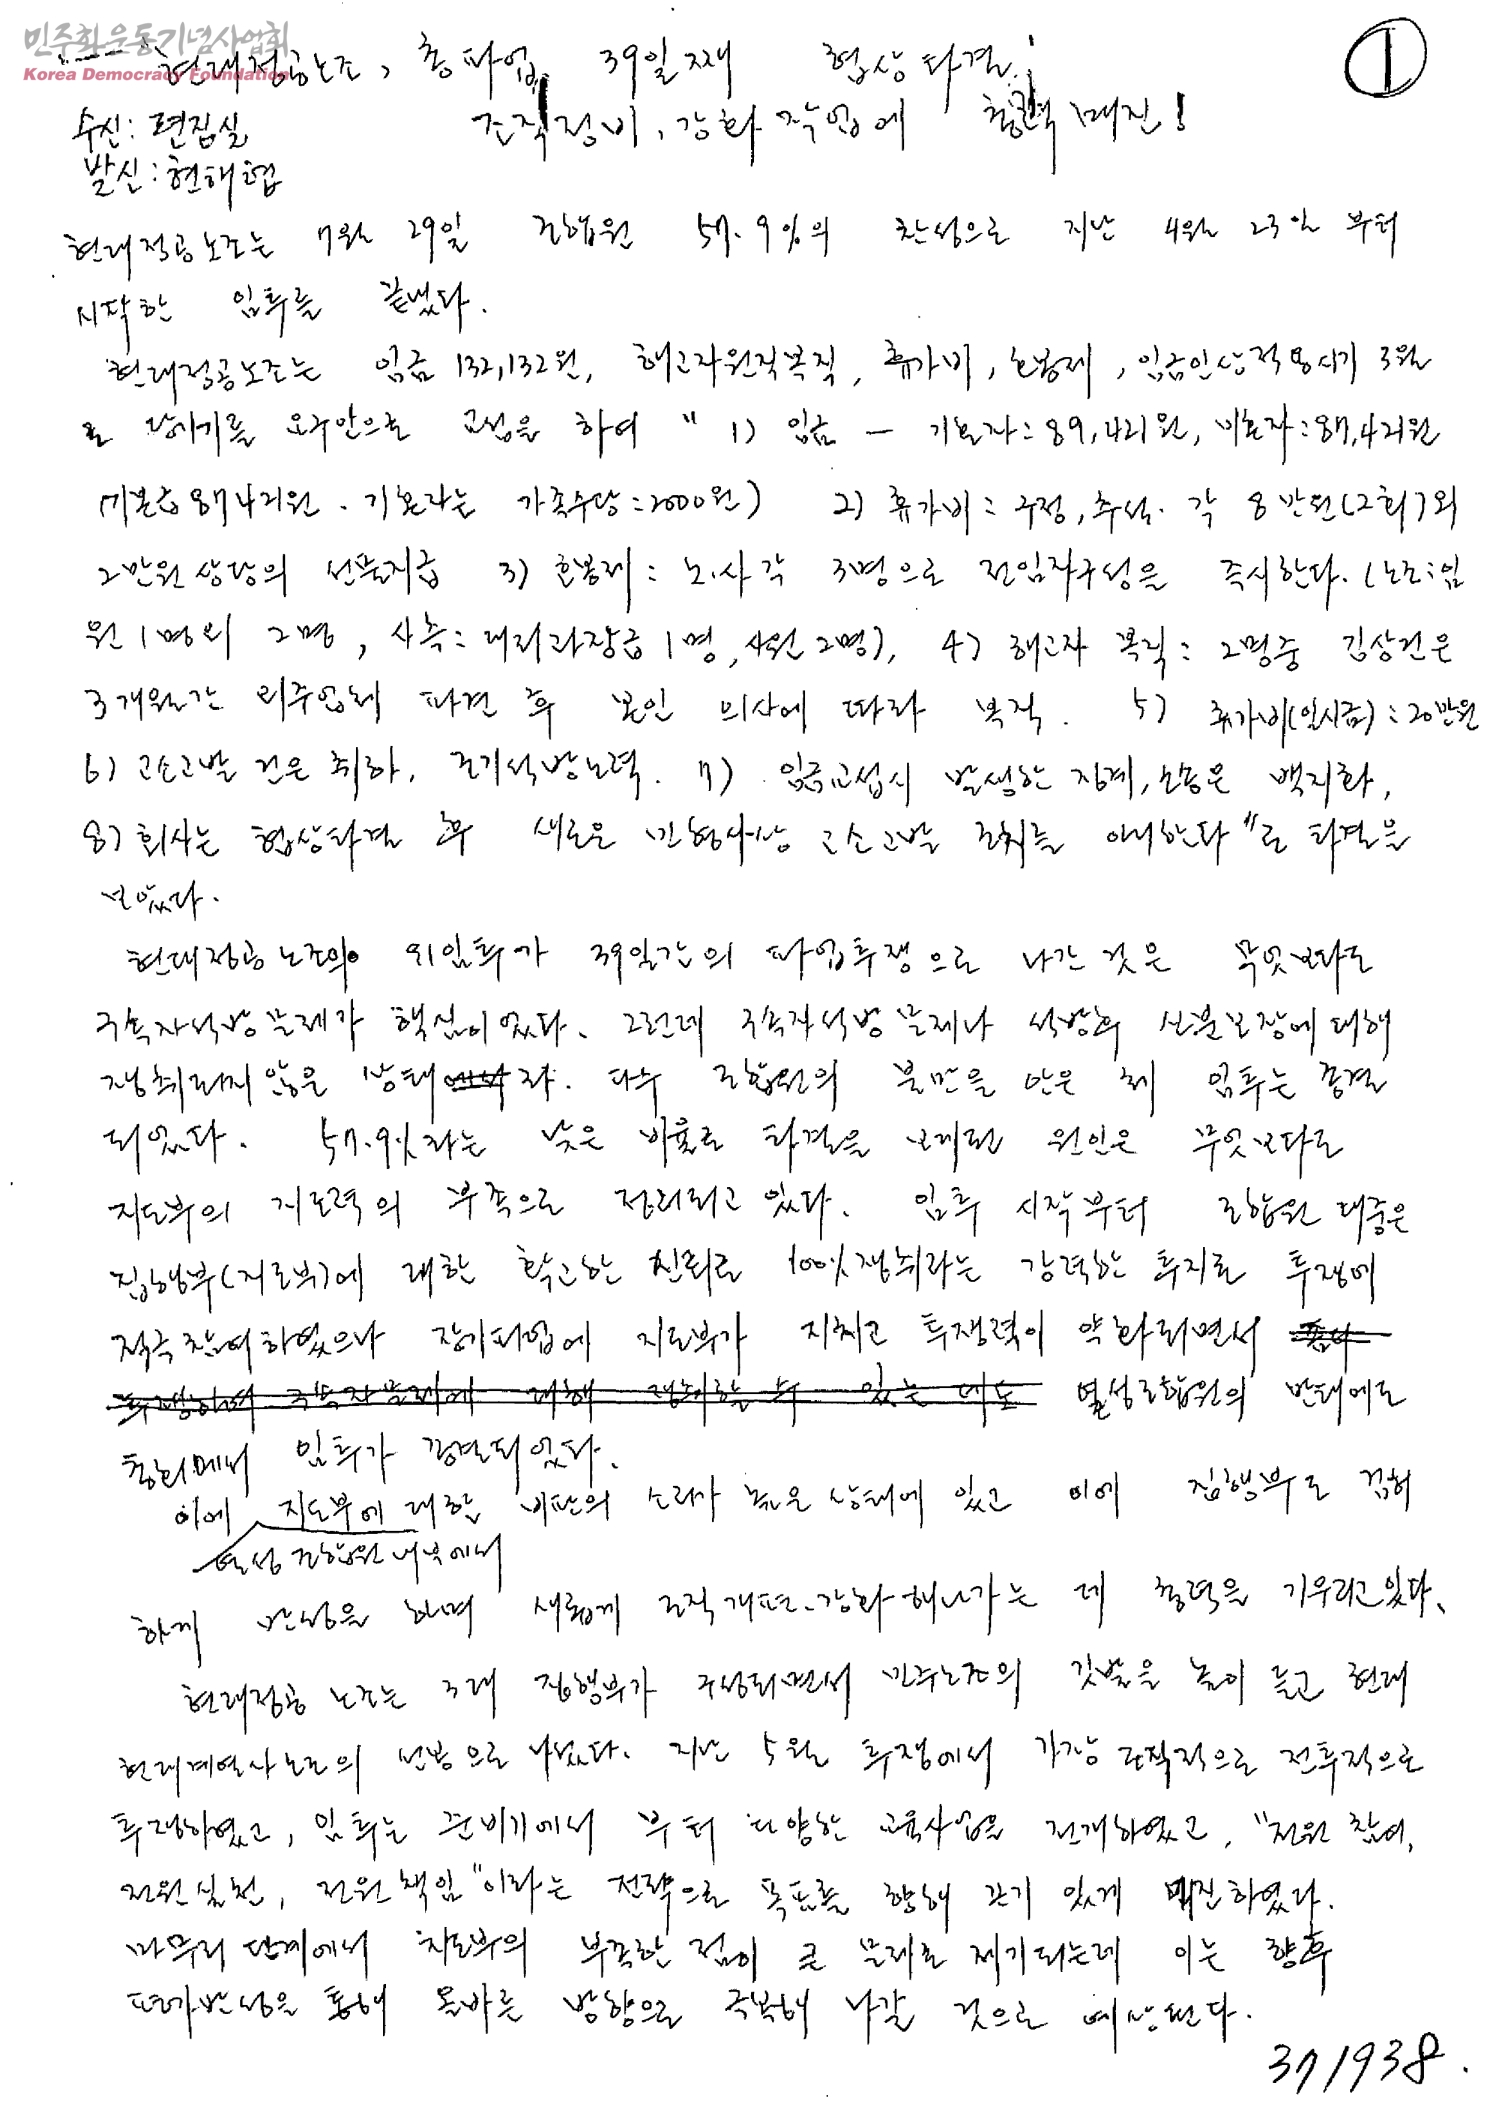 민주화운동기념사업회
Korea Democracy Foundation
①
현대정공노조, 총파업 39일째 협상타결!
조직정비, 강화작업에 총력 매진!
수신: 편집실
발신: 현해협
현대정공노조는 7월 29일 조합원 57.9%의 찬성으로 지난 4월 23일 부터
시작한 임투를 끝냈다.
현대정공노조는 임금 132,132원, 해고자원직복직, 휴가비, 호봉제, 임금인상적용시기 3월
로 당기기를 요구안으로 교섭을 하여 " 1) 임금 - 기혼자: 89,421원, 미혼자: 87,421원
(기본급 87421원. 기혼자는 가족수당: 2000원) 2) 휴가비: 구정, 추석. 각 8만원(2회)외
2만원 상당의 선물지급 3) 호봉제: 노.사 각 3명으로 전임자구성을 즉시한다. (노조: 임
원 1명외 2명, 사측: 대리과장급 1명, 사원 2명), 4) 해고자 복직: 2명중 김상건은
3개월간 외주업체 파견 후 본인 의사에 따라 복직. 5) 휴가비(일시금): 20만원
6) 고소고발 건은 취하, 조기석방노력. 7) 임금교섭시 발생한 징계, 소송은 백지화,
8) 회사는 협상타결 후 새로운 민형사상 고소고발 조치를 아니한다"로 타결을
보았다.
현대정공 노조의 임투가 39일간의 파업투쟁으로 나간 것은 무엇보다도
구속자석방 문제가 핵심이었다. 그런데 구속자석방 문제나 석방후 신분보장에 대해
쟁취되지 않은 상태자. 다수 조합원의 불만을 안은 체 임투는 종결
되었다. 57.9%라는 낮은 비율로 타결을 보게된 원인은 무엇보다도
지도부의 지도력의 부족으로 정리되고 있다. 임투 시작부터 조합원 대중은
집행부(지도부)에 대한 확고한 신뢰로 100%쟁취라는 강력한 투지로 투쟁에
적극 참여하였으나 장기파업에 지도부가 지치고 투쟁력이 약화되면서
투쟁하여 구속자문제에 대해 쟁취할 수 있는 데도 열성조합원의 반대에도
총회에서 임투가 종결되었다.
이에 지도부에 대한 비판의 소리가 높은 상태에 있고 이에 집행부도 겸허
열성 조합원 내부에서
하게 반성을 하며 새롭게 조직개편.강화해나가는 데 총력을 기우리고있다.
현대정공 노조는 3대 집행부가 구성되면서 민주노조의 깃발을 높이 들고 현대
현대계열사노조의 선봉으로 나섰다. 지난 5월 투쟁에서 가장 조직적으로 전투적으로
투쟁하였고, 임투는 준비기에서 부터 다양한 교육사업을 전개하였고, "전원 참여,
전원실천, 전원책임"이라는 전략으로 목표를 향해 끈기 있게 매진하였다.
마무리 단계에서 지도부의 부족한 점이 큰 문제로 제기되는데 이는 향후
평가반성을 통해 올바른 방향으로 극복해 나갈 것으로 예상된다.
371938.